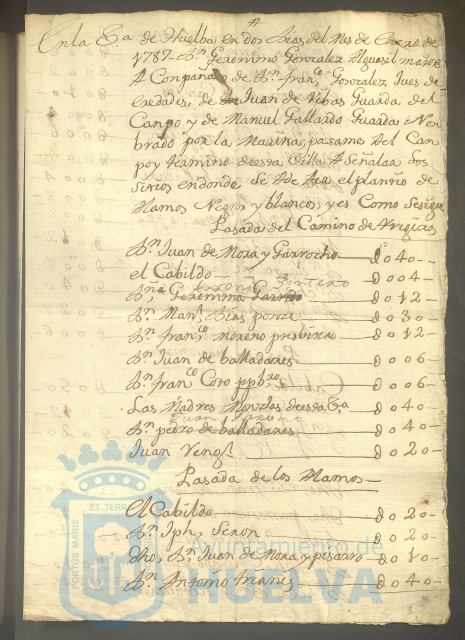 En la V.a de Huelba en dos dias del Mes de Enero de
1787 Dn Geronimo Gonzalez Alguasil maior
A Compaña de Dn Franco Gonzalez Jues de
eredades, de Juan de Vibas Guarda del
Canpo y de Manuel Gallardo Guarda Non
brado por la Marina, pasamos Al Can
po y termino dessta Villa A Señalar dos
sitios endonde Se A de el plantio de
Alamos Negros y blancos, y es Como Sesigue
Pasada del Camino de
Dn Juan de Mora y Garrocho 040
el Cabildo 004
Dña Geronima Garrido 012
Dn Manl Dias ponze 030
Dn franco moreno presbitero 012
Dn Juan de balladares 006
Dn franco Coro ppbro 006
Las Madres Monjas deesta Va 040
Dn pedro de balladares 040
Juan 020
Pasada de los Alamos
El Cabildo 020
Dn Jph, Seron 020
dho, Dn Juan de Mora y pisarro 010
Dn Antonio 040
PORTUS MARIS ET TERRAE
Ayuntamiento de
HUELVA